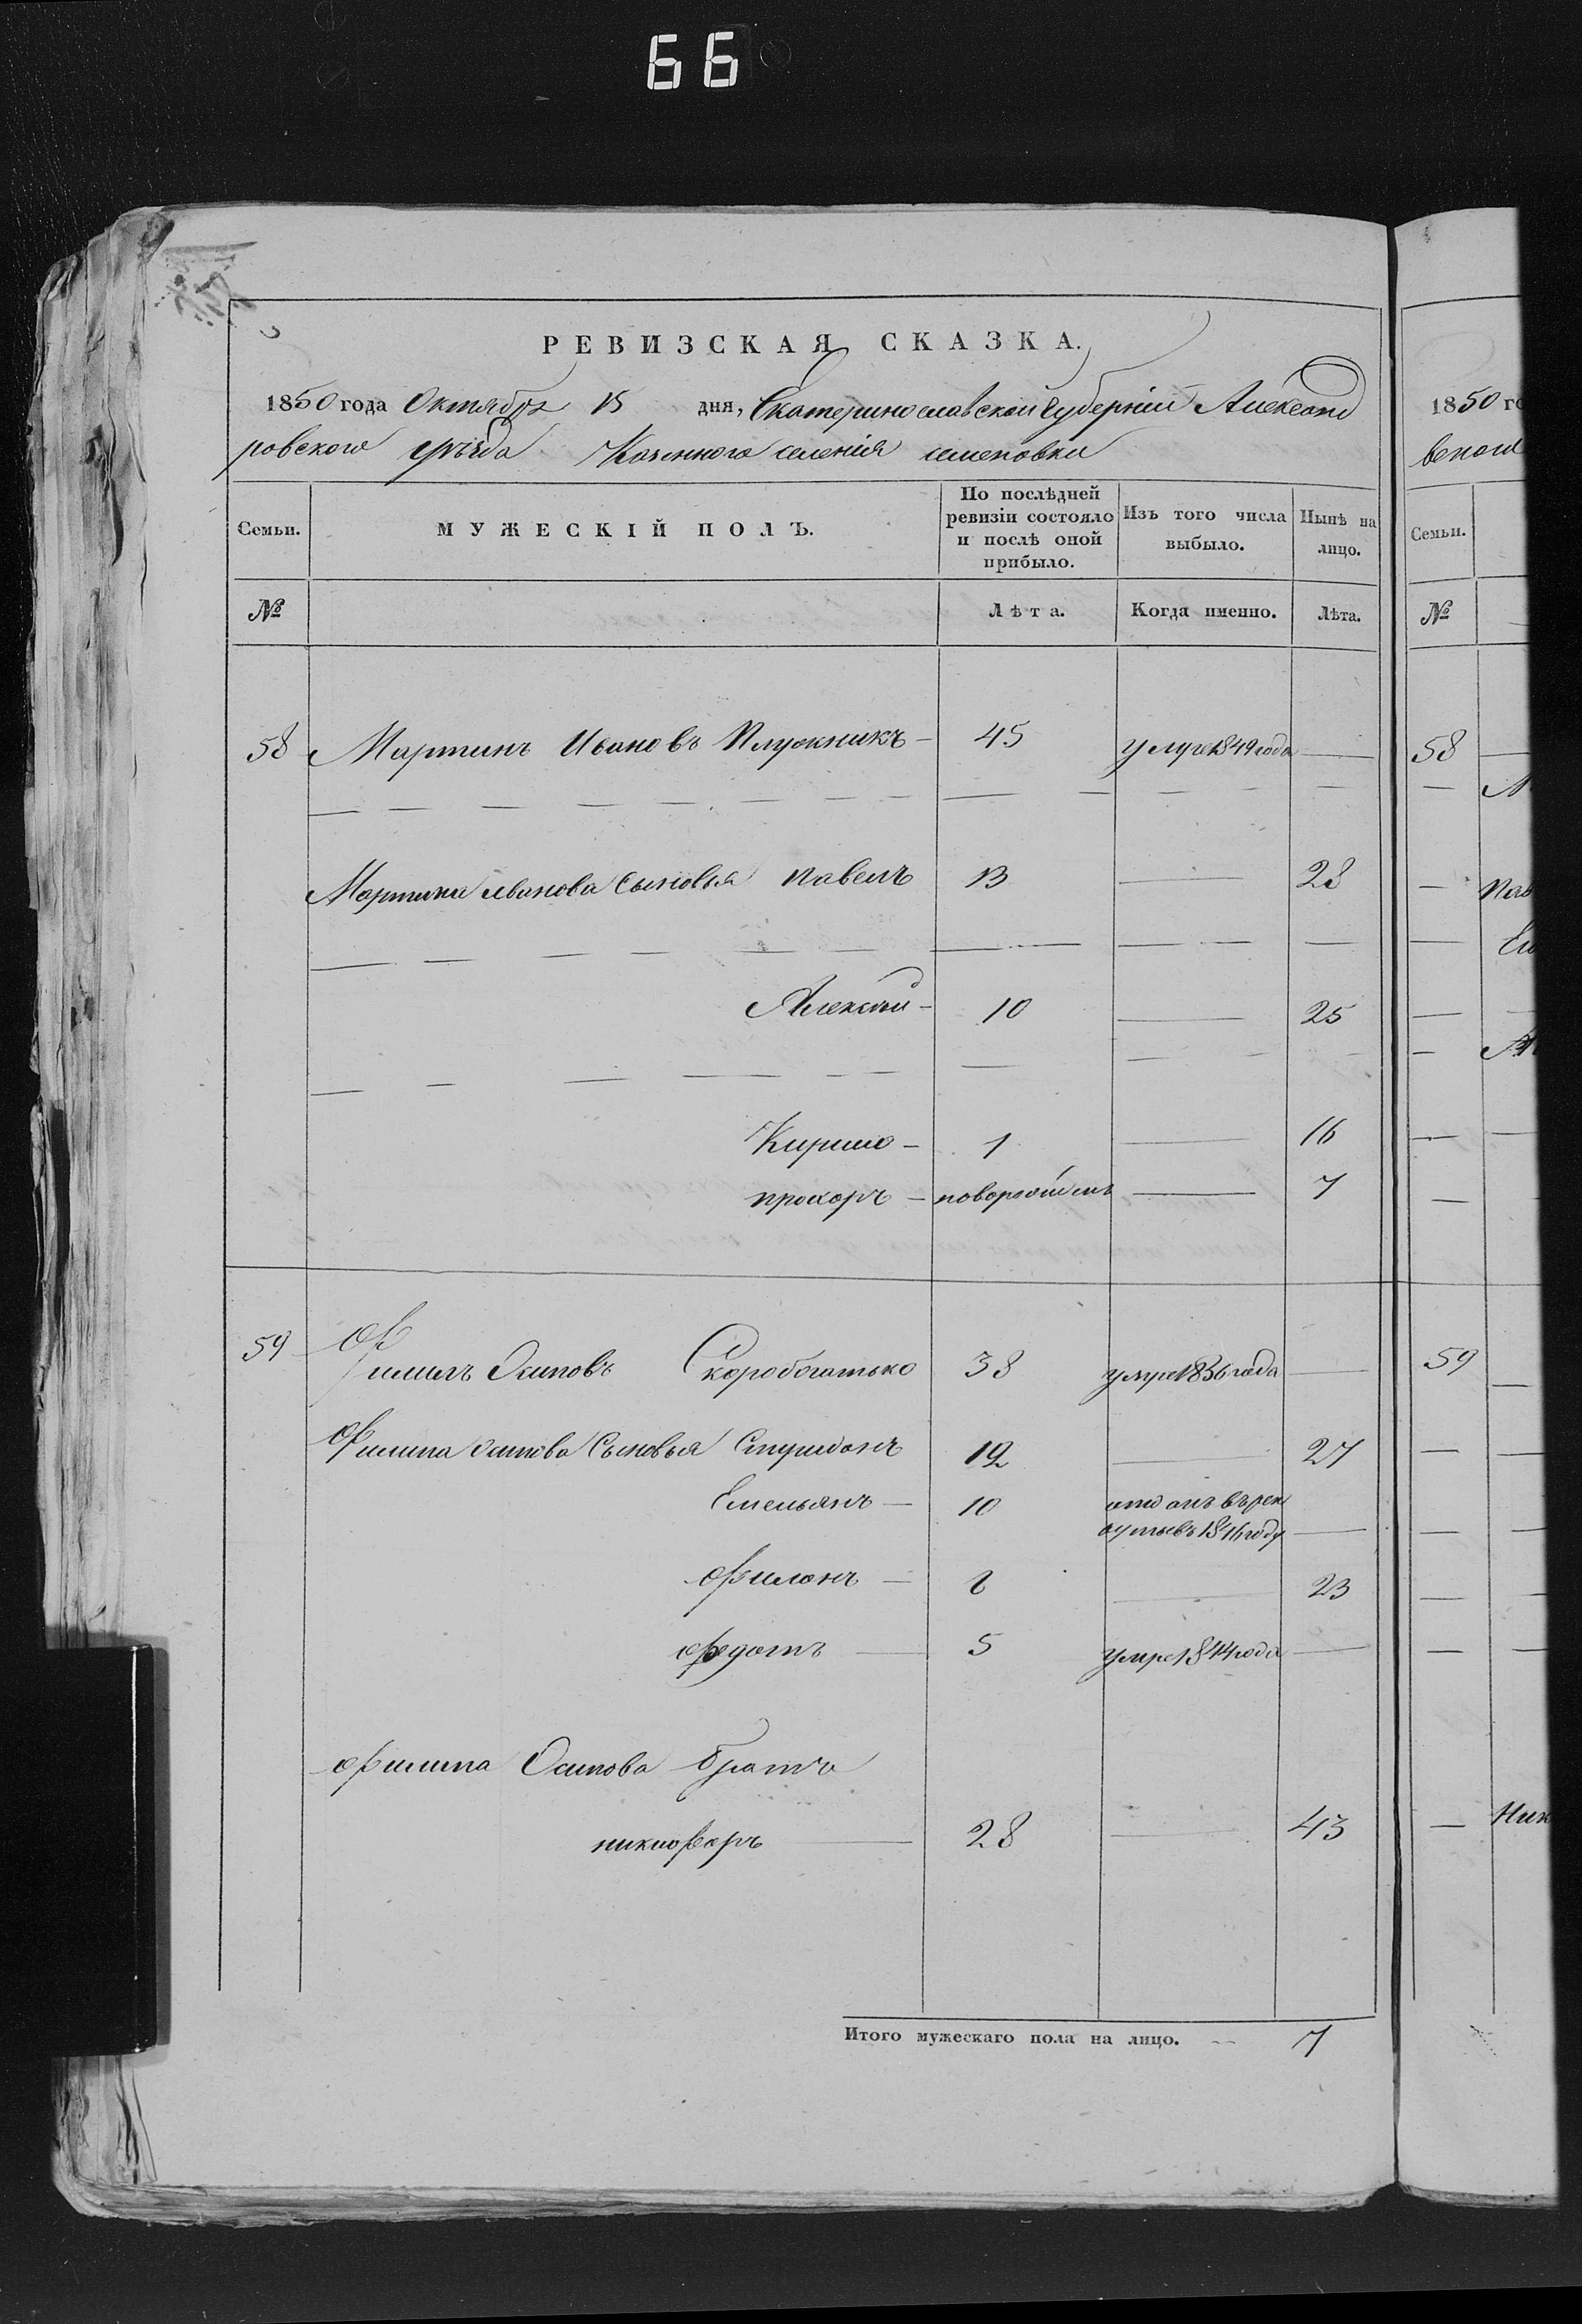 66
РЕВИЗСКАЯ СКАЗКА.
1850 года Октября 15 дня, Екатеринославской Губерніи Александ
ровского уѣзда Казенного селенія семеновки
Семьи.
МУЖЕСКІЙ ПОЛЪ.
По послѣдней ревизіи состояло и послѣ оной прибыло.
Изъ того числа выбыло.
Нынѣ на лицо.
№
Лѣта.
Когда именно.
Лѣта.
58 Мартинъ Ивановъ Плужникъ — 45 умре 1849 года —
Мартина иванова Сыновья павелъ 13 — 28
Алексѣй — 10 — 25
Кирило — 1 — 16
прохоръ — новорожденъ — 7
59 Филипъ Осиповъ Скоробогатько 38 умре 1836 года —
Филипа осипова Сыновья Спиридонъ 12 — 27
Емельянъ — 10 отданъ върек
рутывъ 1846 году —
филонъ — 8 — 23
федотъ — 5 умре 1844 года —
филипа Осипова братъ
никифоръ — 28 — 43
Итого мужескаго пола на лицо. — 7
1850 го
Семьи.
№
58
Пав
59
Ник